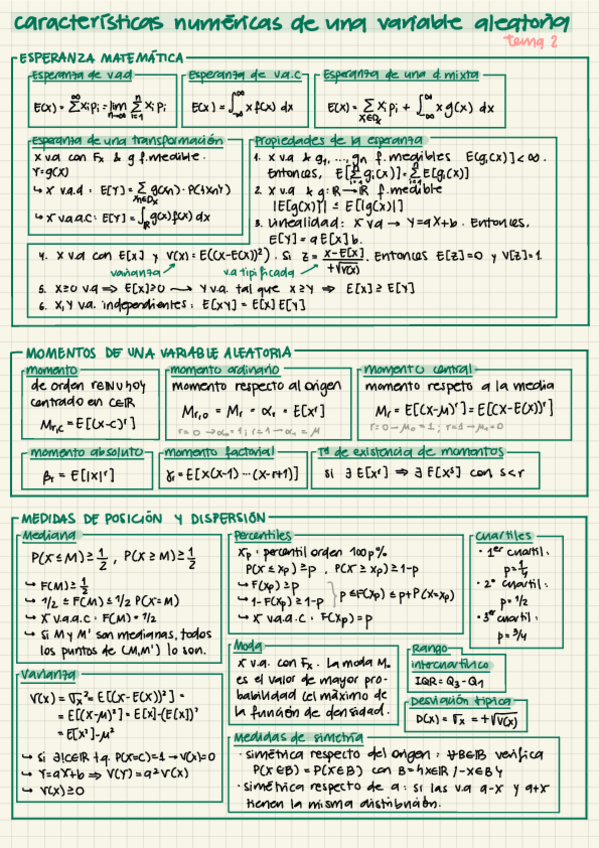 características numéricas de una variable aleatoria
tema 2
ESPERANZA MATEMÁTICA
Esperanza de v.a.d
E(X) = Σ^∞ xᵢpᵢ = lim_{n→∞} Σ_{i=1}^n xᵢpᵢ
Esperanza de v.a.c
E(X) = ∫_{-∞}^{∞} x f(x) dx
Esperanza de una d. mixta
E(X) = Σ_{xᵢ∈Dₓ} xᵢ pᵢ + ∫_{-∞}^{∞} x g(x) dx
Esperanza de una transformación
X v.a con Fₓ & g f. medible.
Y=g(X)
↪ X v.a.d : E[Y] = Σ_{xᵢ∈Dₓ} g(xᵢ) · P(X=xᵢ)
↪ X v.a.a.c: E[Y] = ∫_ℝ g(x)f(x) dx
Propiedades de la esperanza
1. X v.a & g₁, ..., gₙ f. medibles E[gᵢ(X)] < ∞.
Entonces, E[Σ_{i=1}^n gᵢ(X)] = Σ_{i=1}^n E[gᵢ(X)]
2. X v.a & g: ℝ → ℝ f. medible
|E[g(X)]| ≤ E[|g(X)|]
3. Linealidad: X v.a → Y=aX+b. Entonces,
E[Y] = a E[X] b.
4. X v.a con E[X] y V(X) = E((X-E(X))²). Si Z = (X-E[X])/(+√V(X)). Entonces E[Z]=0 y V[Z]=1
varianza
v.a tipificada
5. X≥0 v.a ⟹ E[X]≥0 ⟶ Y v.a. tal que X≥Y ⟹ E[X] ≥ E[Y]
6. X, Y v.a. independientes: E[XY] = E[X] E[Y]
MOMENTOS DE UNA VARIABLE ALEATORIA
momento
de orden r∈ℕ∪{0}
centrado en c∈ℝ
M_{r,c} = E[(X-c)ʳ]
momento ordinario
momento respecto al origen
M_{r,0} = Mᵣ = αᵣ = E[Xʳ]
r=0 → α₀=1 ; r=1 → α₁=μ
momento central
momento respeto a la media
Mᵣ = E[(X-μ)ʳ] = E[(X-E(X))ʳ]
r=0 → μ₀=1 ; r=1 → μ₁=0
momento absoluto
βᵣ = E[|X|ʳ]
momento factorial
γᵣ = E[X(X-1) ··· (X-r+1)]
Tª de existencia de momentos
si ∃ E[Xʳ] ⟹ ∃ E[Xˢ] con s<r
MEDIDAS DE POSICIÓN Y DISPERSIÓN
Mediana
P(X≤M) ≥ 1/2 , P(X≥M) ≥ 1/2
↪ F(M) ≥ 1/2
↪ 1/2 ≤ F(M) ≤ 1/2 P(X=M)
↪ X v.a.a.c : F(M) = 1/2
↪ si M y M' son medianas, todos
los puntos de (M,M') lo son.
Percentiles
Xₚ : percentil orden 100p%
P(X≤xₚ) ≥ p , P(X≥xₚ) ≥ 1-p
↪ F(xₚ) ≥ p
↪ 1-F(xₚ) ≥ 1-p
p ≤ F(xₚ) ≤ p+P(X=xₚ)
↪ X v.a.a.c : F(xₚ) = p
Cuartiles
· 1er cuartil:
p=1/4
· 2º cuartil:
p=1/2
· 3er cuartil:
p=3/4
Moda
X v.a. con Fₓ. La moda M₀
es el valor de mayor pro-
babilidad (el máximo de
la función de densidad.
Rango
intercuartílico
IQR = Q₃ - Q₁
Desviación típica
D(X) = σₓ = +√V(X)
Varianza
V(X) = σₓ² = E[(X-E(X))²] =
= E[(X-μ)²] = E[X]-(E[X])²
= E[X²]-μ²
↪ si ∃!c∈ℝ t.q. P(X=c)=1 → V(X)=0
↪ Y=aX+b ⟹ V(Y) = a²V(X)
↪ V(X) ≥ 0
Medidas de simetría
· simétrica respecto del origen: ∀B∈𝔹 verifica
P(X∈B) = P(X∈B) con B={x∈ℝ / -x∈B}
· simétrica respecto de a: si las v.a a-X y a+X
tienen la misma distribución.